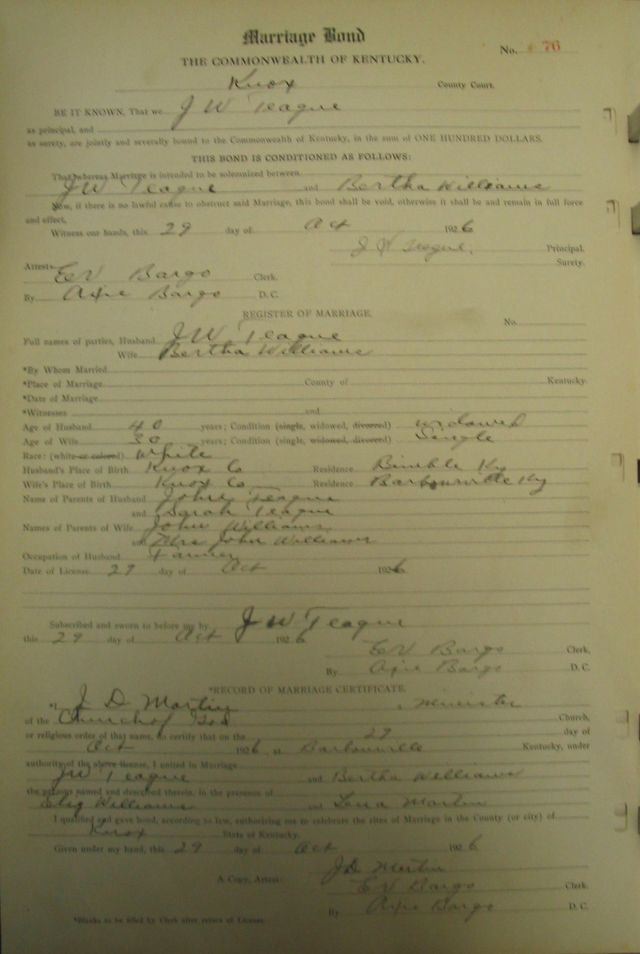 Marriage Bond
No. 76
THE COMMONWEALTH OF KENTUCKY.
Knox County Court.
BE IT KNOWN, That we J W Teague
as principal, and
as surety, are jointly and severally bound to the Commonwealth of Kentucky, in the sum of ONE HUNDRED DOLLARS.
THIS BOND IS CONDITIONED AS FOLLOWS:
That whereas Marriage is intended to be solemnized between
J W Teague and Bertha Williams
Now, if there is no lawful cause to obstruct said Marriage, this bond shall be void, otherwise it shall be and remain in full force
and effect.
Witness our hands, this 29 day of Oct 1926
J W Teague. Principal.
Surety.
Attest: E V Bargo Clerk.
By Bargo D. C.
REGISTER OF MARRIAGE.
No.
Full names of parties, Husband J W Teague
Wife Bertha Williams
*By Whom Married
*Place of Marriage County of Kentucky.
*Date of Marriage
*Witnesses and
Age of Husband 40 years; Condition (single, widowed, divorced) widowed
Age of Wife 30 years; Condition (single, widowed, divorced) Single
Race: (white or colored) White
Husband's Place of Birth Knox Co Residence Bimble Ky
Wife's Place of Birth Knox Co Residence Barbourville Ky
Name of Parents of Husband John Teague
and Sarah Teague
Names of Parents of Wife John Williams
and Mrs John Williams
Occupation of Husband Farmer
Date of License 29 day of Oct 1926
Subscribed and sworn to before me by J W Teague
this 29 day of Oct 1926
E V Bargo Clerk,
By Bargo D. C.
*RECORD OF MARRIAGE CERTIFICATE.
*I, J D Martin, Minister
of the Church of God Church,
or religious order of that name, do certify that on the 29 day of
Oct 1926, at Barbourville Kentucky, under
authority of the above license, I united in Marriage
J W Teague and Bertha Williams
the persons named and described therein, in the presence of
Williams and Lena Martin
I qualified and gave bond, according to law, authorizing me to celebrate the rites of Marriage in the County (or city) of
Knox State of Kentucky.
Given under my hand, this 29 day of Oct 1926
J D Martin
A Copy, Attest: E V Bargo Clerk.
By Bargo D. C.
*Blanks to be filled by Clerk after return of License.